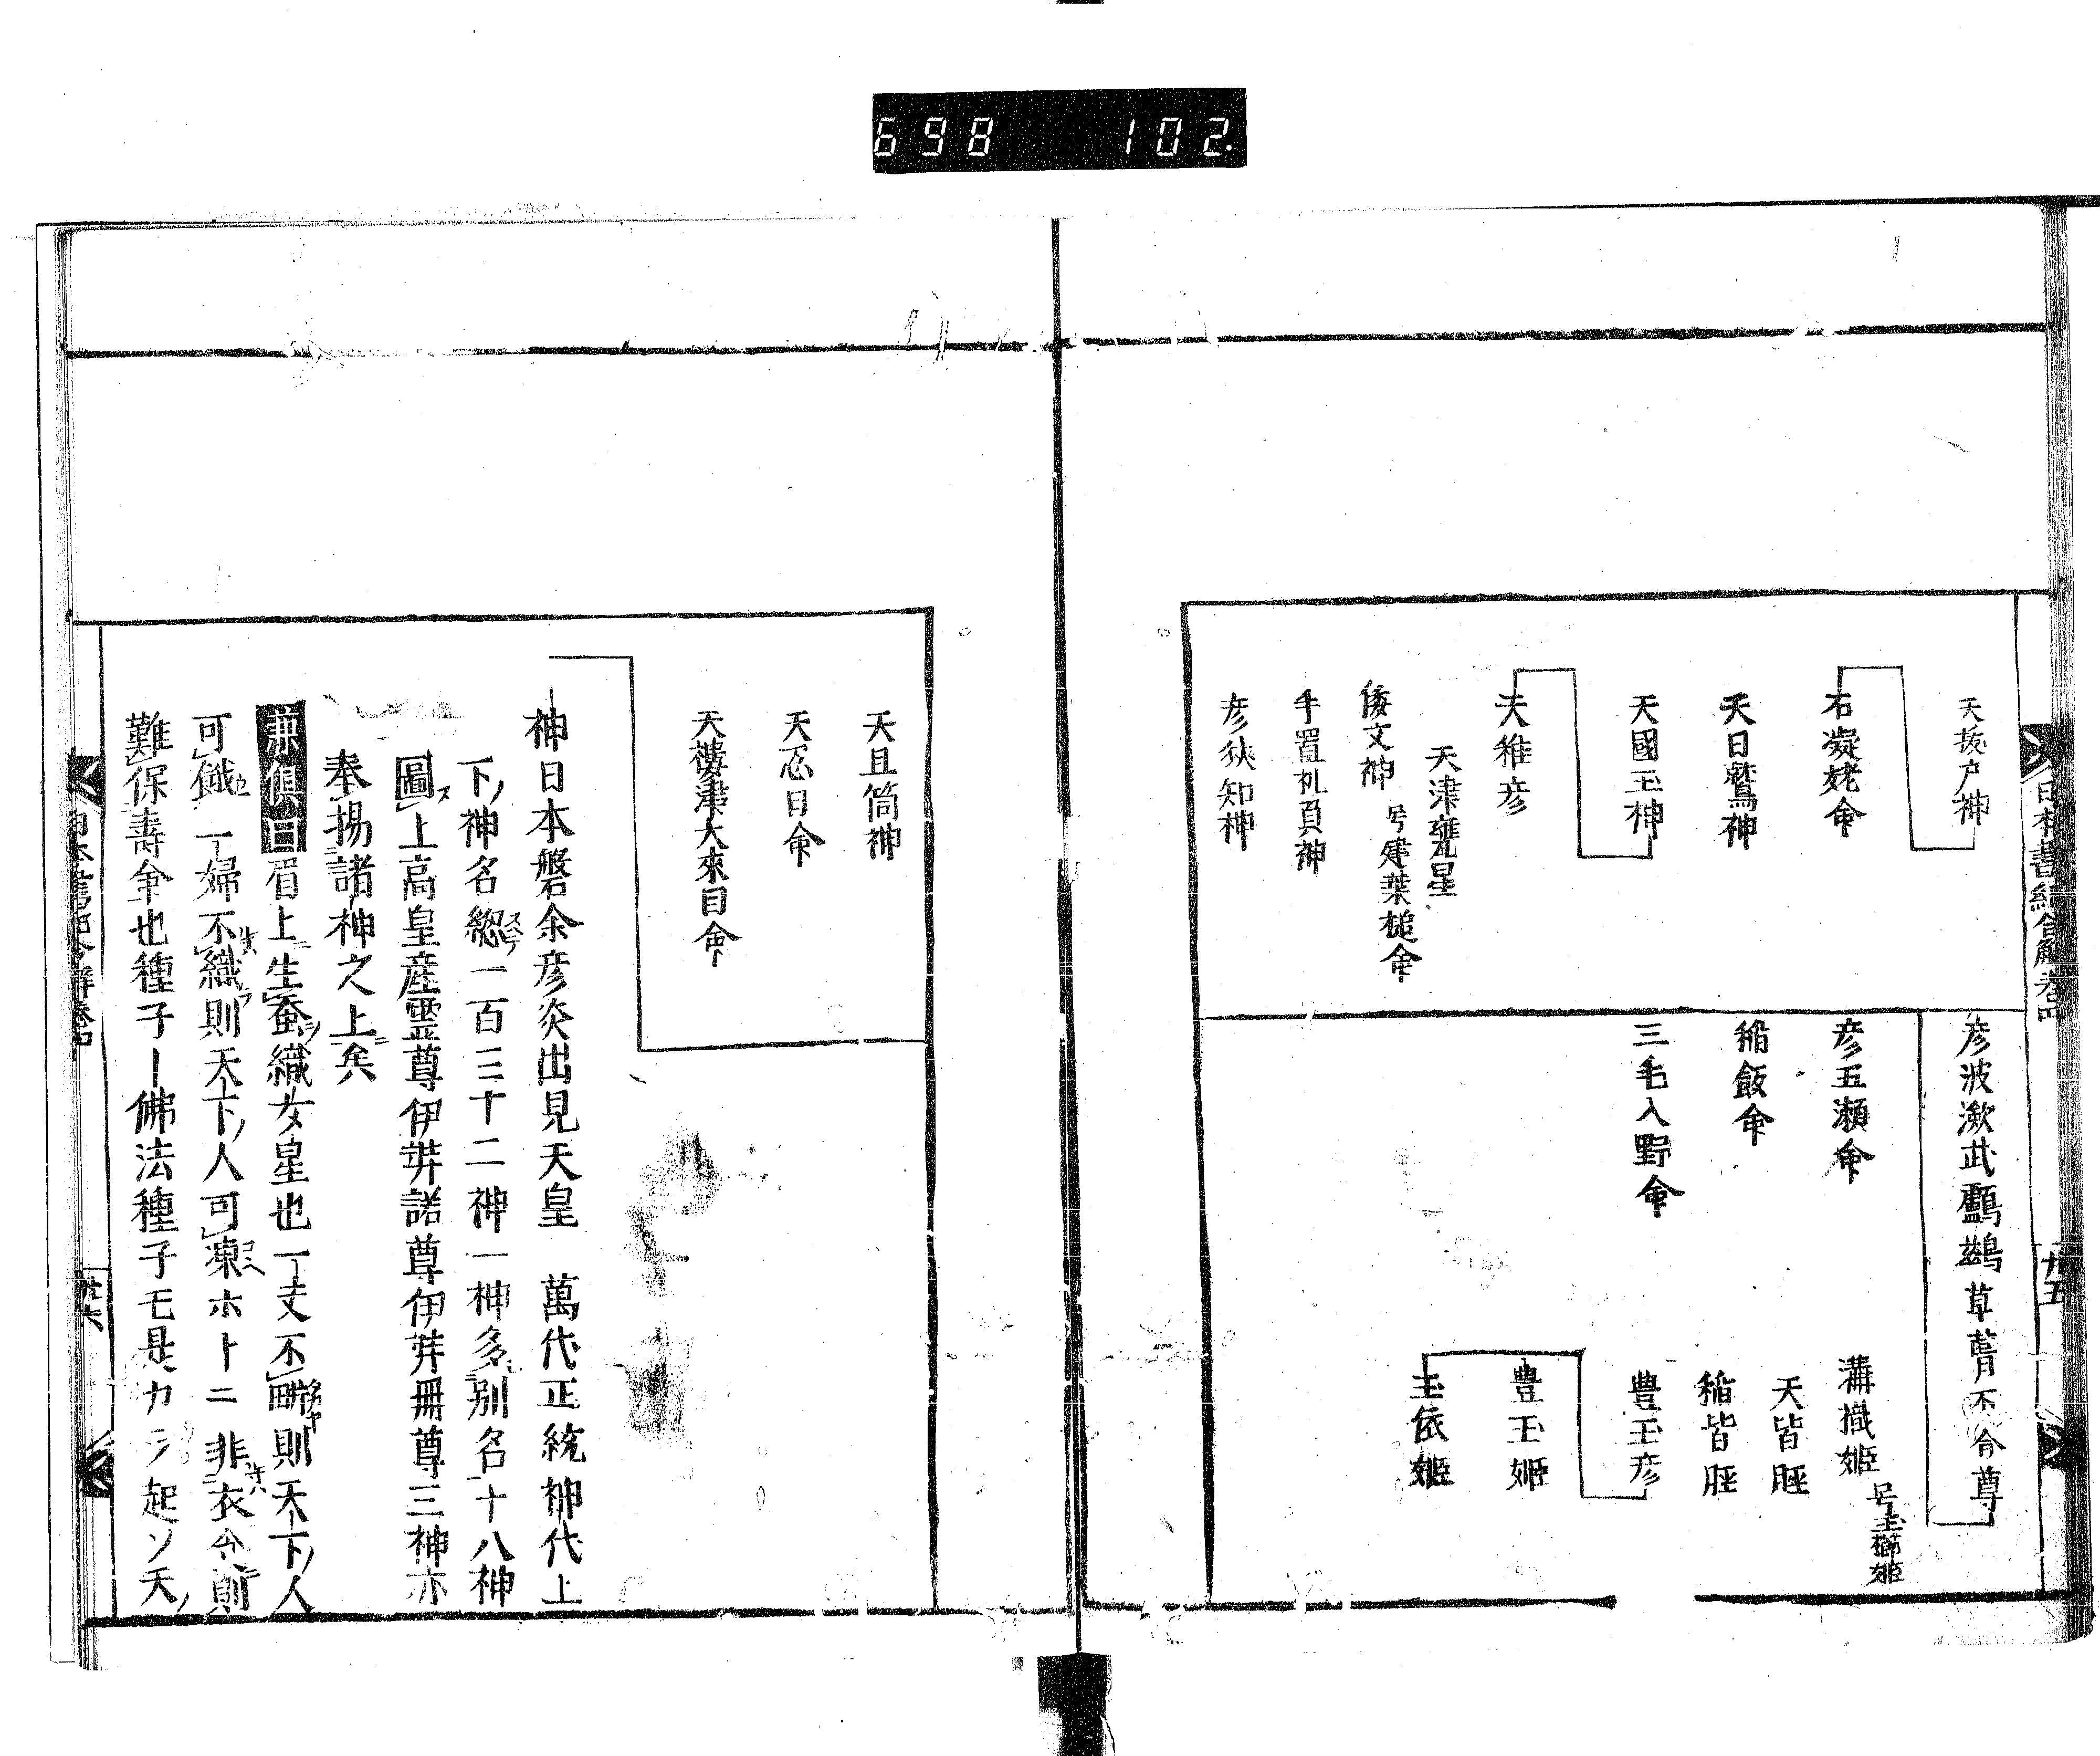 698 102.
日本書紀合解卷四
廿五
天抜戸神
石凝姥命
天日鷲神
天國玉神
天稚彦
天津甕星
倭文神 号建葉槌命
手置帆負神
彦狹知神
彦波瀲武鸕鷀草葺不合尊
彦五瀬命
稲飯命
三毛入野命
溝織姫 号玉櫛姫
天皆脛
稲皆脛
豊玉彦
豊玉姫
玉依姫
天且筒神
天忍日命
天櫻津大來目命
神日本磐余彦炎出見天皇 萬代正統神代上
下ノ神名緫一百三十二神一神多別名十八神
圖ス上高皇産霊尊伊弉諾尊伊弉冊尊三神亦
奉揚諸神之上矣
兼倶曰眉上ニ生蚕ヲ織女星也一丈不畊則天下ノ人
可饑一婦不織則天下ノ人可凍ホトニ非衣食則
難保壽命也種子ー佛法種子モ是カラ起ソ天ノ
日本書紀合解卷四
廿六